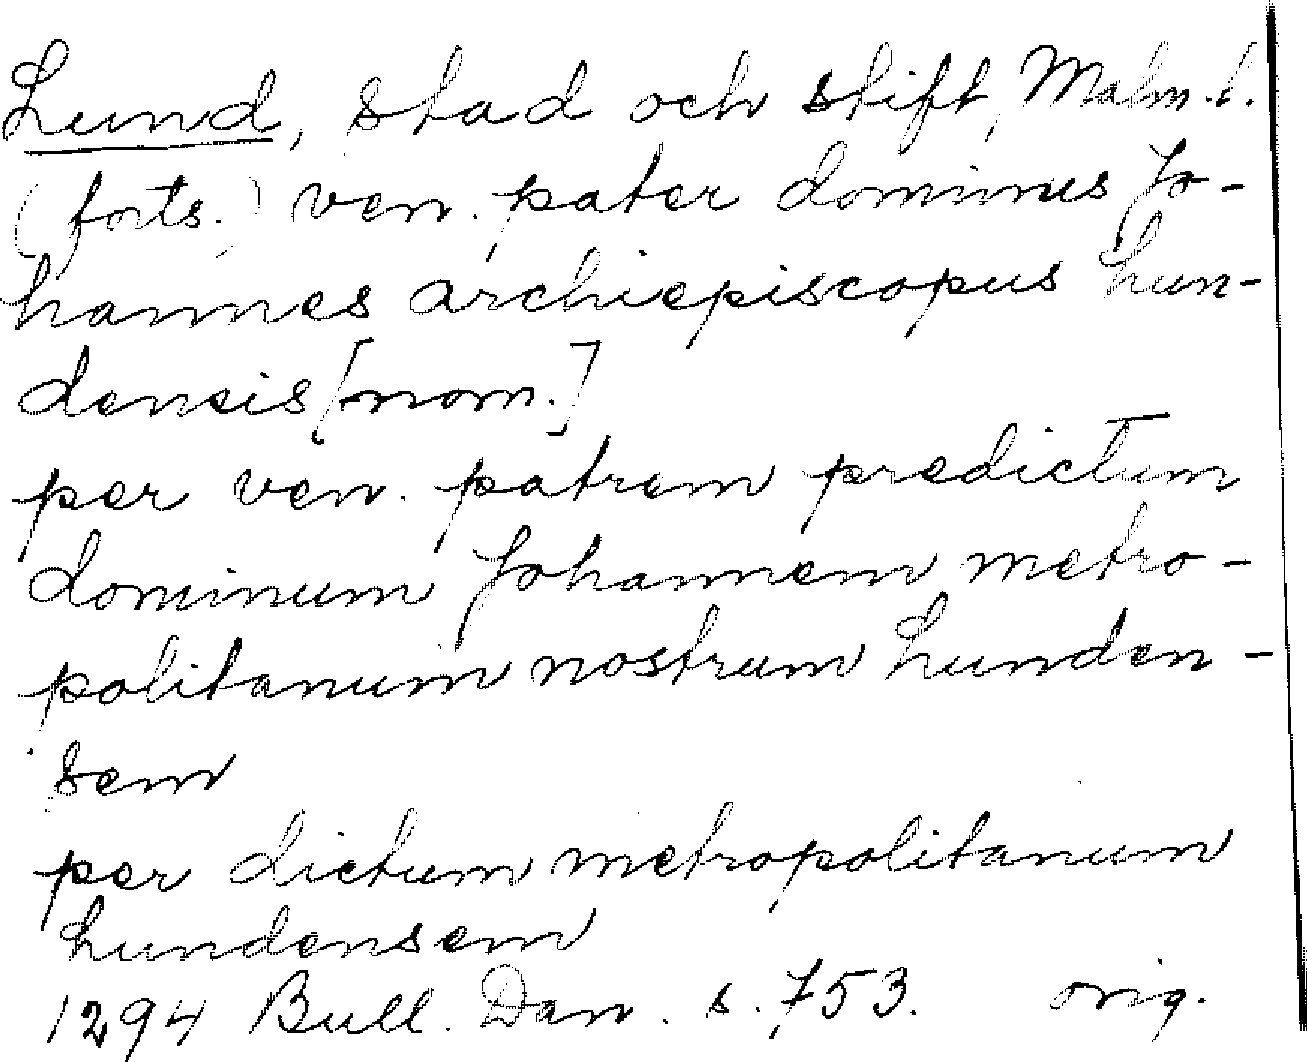 Lund, stad och stift, Malm. l.
(forts.) ven. pater dominus Jo-
hannes archiepiscopus Lun-
densis [nom.]
per ven. patrem predictum
dominum Johannem metro-
politanum nostrum Lunden-
sem
per dictum metropolitanum
Lundensem
1294 Bull. Dan. s. 753. orig.